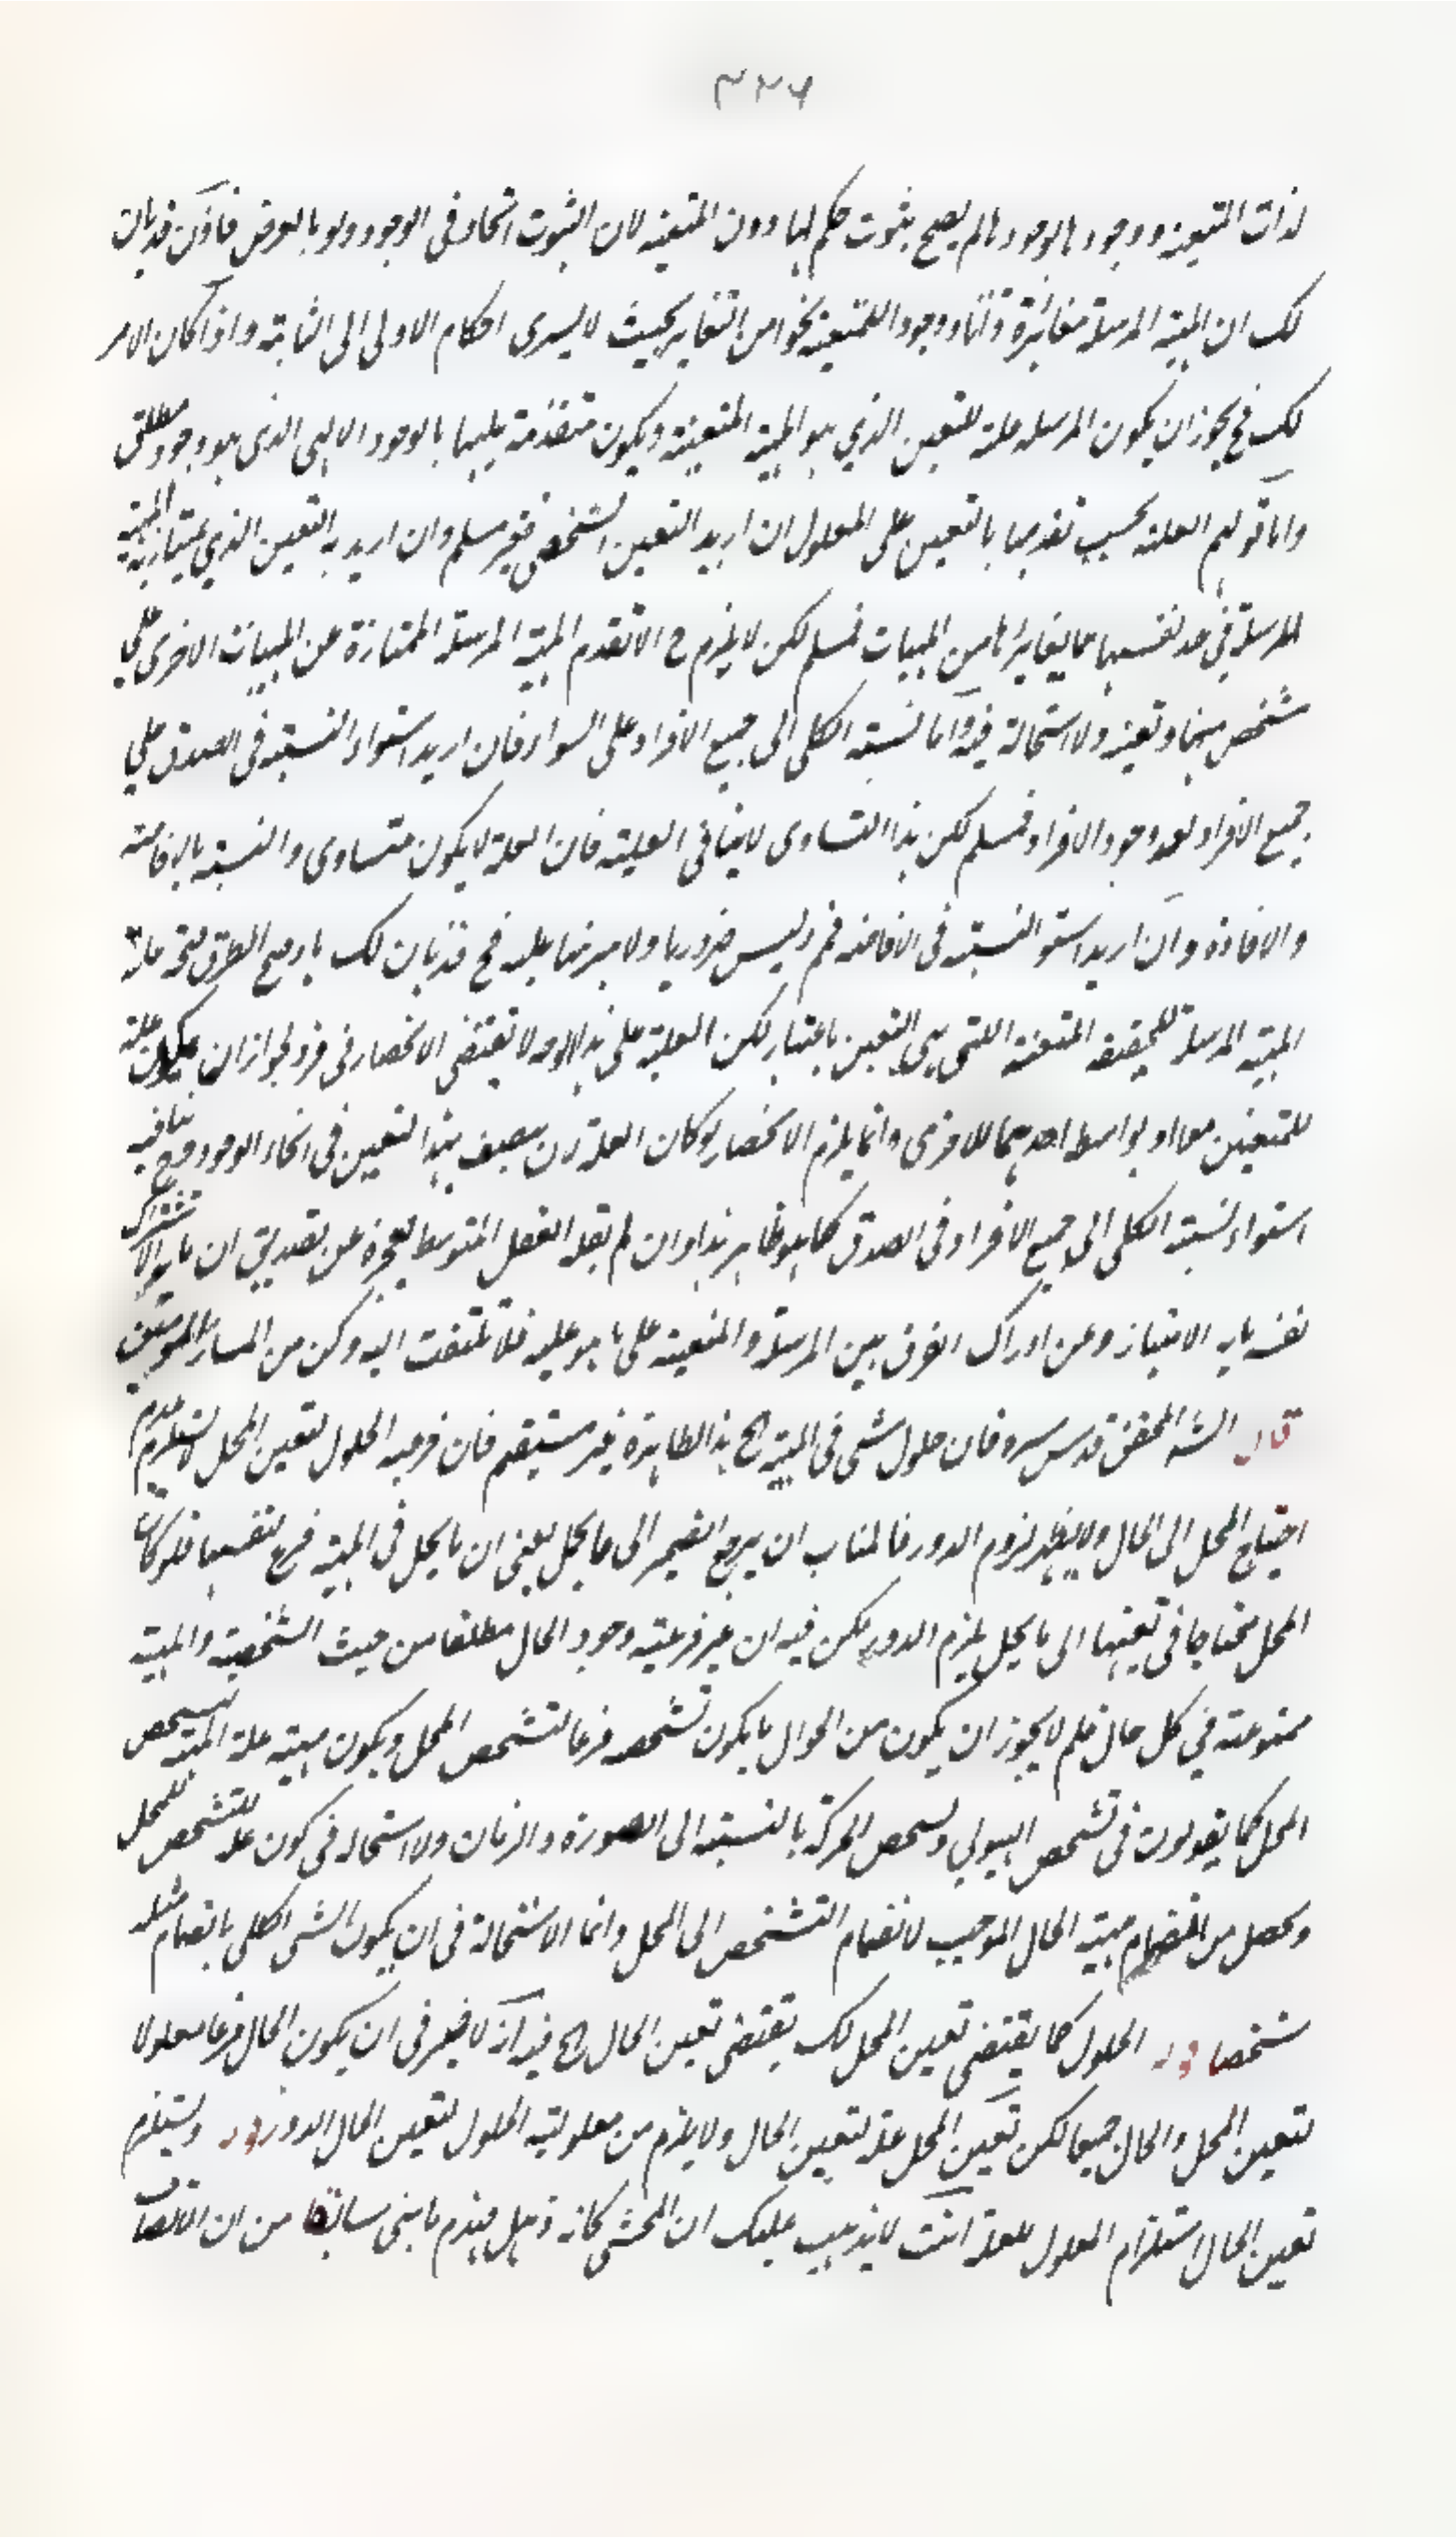 ٣٢٦
لذات المتعينة ووجودها لوجودها لم يصح ثبوت حكم لها دون المتعينة لان الثبوت اتحاد فى الوجود ولو بالعرض فاذن قد بان
لك ان المهية المرسلة مغائرة ذاتا ووجودا للمتعينة نحوا من التغاير بحيث لا يسرى احكام الاولى الى الثانية واذا كان الامر
كك فح يجوز ان يكون المرسله علة للتعين الذي هو المهية المتعينة ويكون متقدمة عليها بالوجود الالهى الذى هو وجود مطلق
واما قولهم العلة يجب تقدمها بالتعين على المعلول ان اريد التعين الشخصى فغير مسلم وان اريد به التعين الذي يمتاز به المهية
المرسلة فى حد نفسها عما يغايرها من المهيات فمسلم لكن لا يلزم ح الا تقدم المهية المرسلة الممتازة عن المهيات الاخرى على
شخص منها وتعينه ولا استحالة فيه واما نسبة الكلى الى جميع الافراد على السواء فان اريد استواء النسبة فى الصدق على
جميع الافراد بعد وجود الافراد فمسلم لكن هذا التساوى لا ينافى العلية فان العلة لا يكون متساوى والنسبة بالافاضة
والافادة وان اريد استو النسبة فى الافاضه فم وليس ضروريا ولا مبرهنا عليه فح قد بان لك باوضح الطرق صحة علة
المهية المرسلة للحقيقة المتعينة اللتى هى التعين باعتبار لكن العلية على هذا الوجه لا تقتضى الانحصار فى فرد لجواز ان يكون علة
للمتعينين معا او بواسطة احدهما للاخرى وانما يلزم الانحصار لو كان العلة ان يصف بهذا التعين فى انحاء الوجود وح ينافيه
استواء نسبة الكلى الى جميع الافراد فى الصدق كما هو ظاهر هذا وان لم يقله العقل المتوسط لعجزه عن تصديق ان ما به الاشتراك
نفسه ما به الامتياز وعن ادراك الفرق بين المرسلة والمتعينة على ما هو عليه فلا تلتفت اليه وكن من
قال الشه المحقق قدس سره فان حلول شئ فى المهية الخ هذا لظاهره غير مستقيم فان فرعيه الحلول لتعين المحل لا يستلزم عدم
احتياج المحل الى الحال ولا يظهر لزوم الدور فالمناسب ان يرجع الضمير الى ما يحل يعنى ان ما يحل فى المهية فرع لتعينها فلو كان
المحل محتاجا فى تعينها الى ما يحل يلزم الدور لكن فيه ان غير فرعيته وجود الحال مطلقا من حيث الشخصية والمهية
ممنوعة في كل حال فلم لا يجوز ان يكون من الحوال ما يكون تشخصه فرعا لتشخص المحل ويكون مهيته علة لتشخص
المحل كما يقولون فى تشخص الهيولي وتشخص الحركة بالنسبة الى الصورة والزمان ولا استحالة فى كون علة للتشخص للمحل
ويحصل من انضمام مهية الحال الموجب لانضمام التشخص الى المحل وانما الاستحالة فى ان يكون الشى الكلى بانضمام مثله
شخصا قوله الحلول كما يقتضى تعين المحل كك يقتضى تعين الحال الخ فيه انه لا ضير فى ان يكون الحال فرعا معلولا
لتعين المحل والحال جميعا لكن تعين المحل علة لتعين الحال ولا يلزم من معلولية الحلول لتعين الحال الدور قوله ويستلزم
تعين الحال استلزام المعلول للعلة انت لا يذهب عليك ان المحشى كانه ذهل منهم ما بنى سابقا من ان الاتصاف